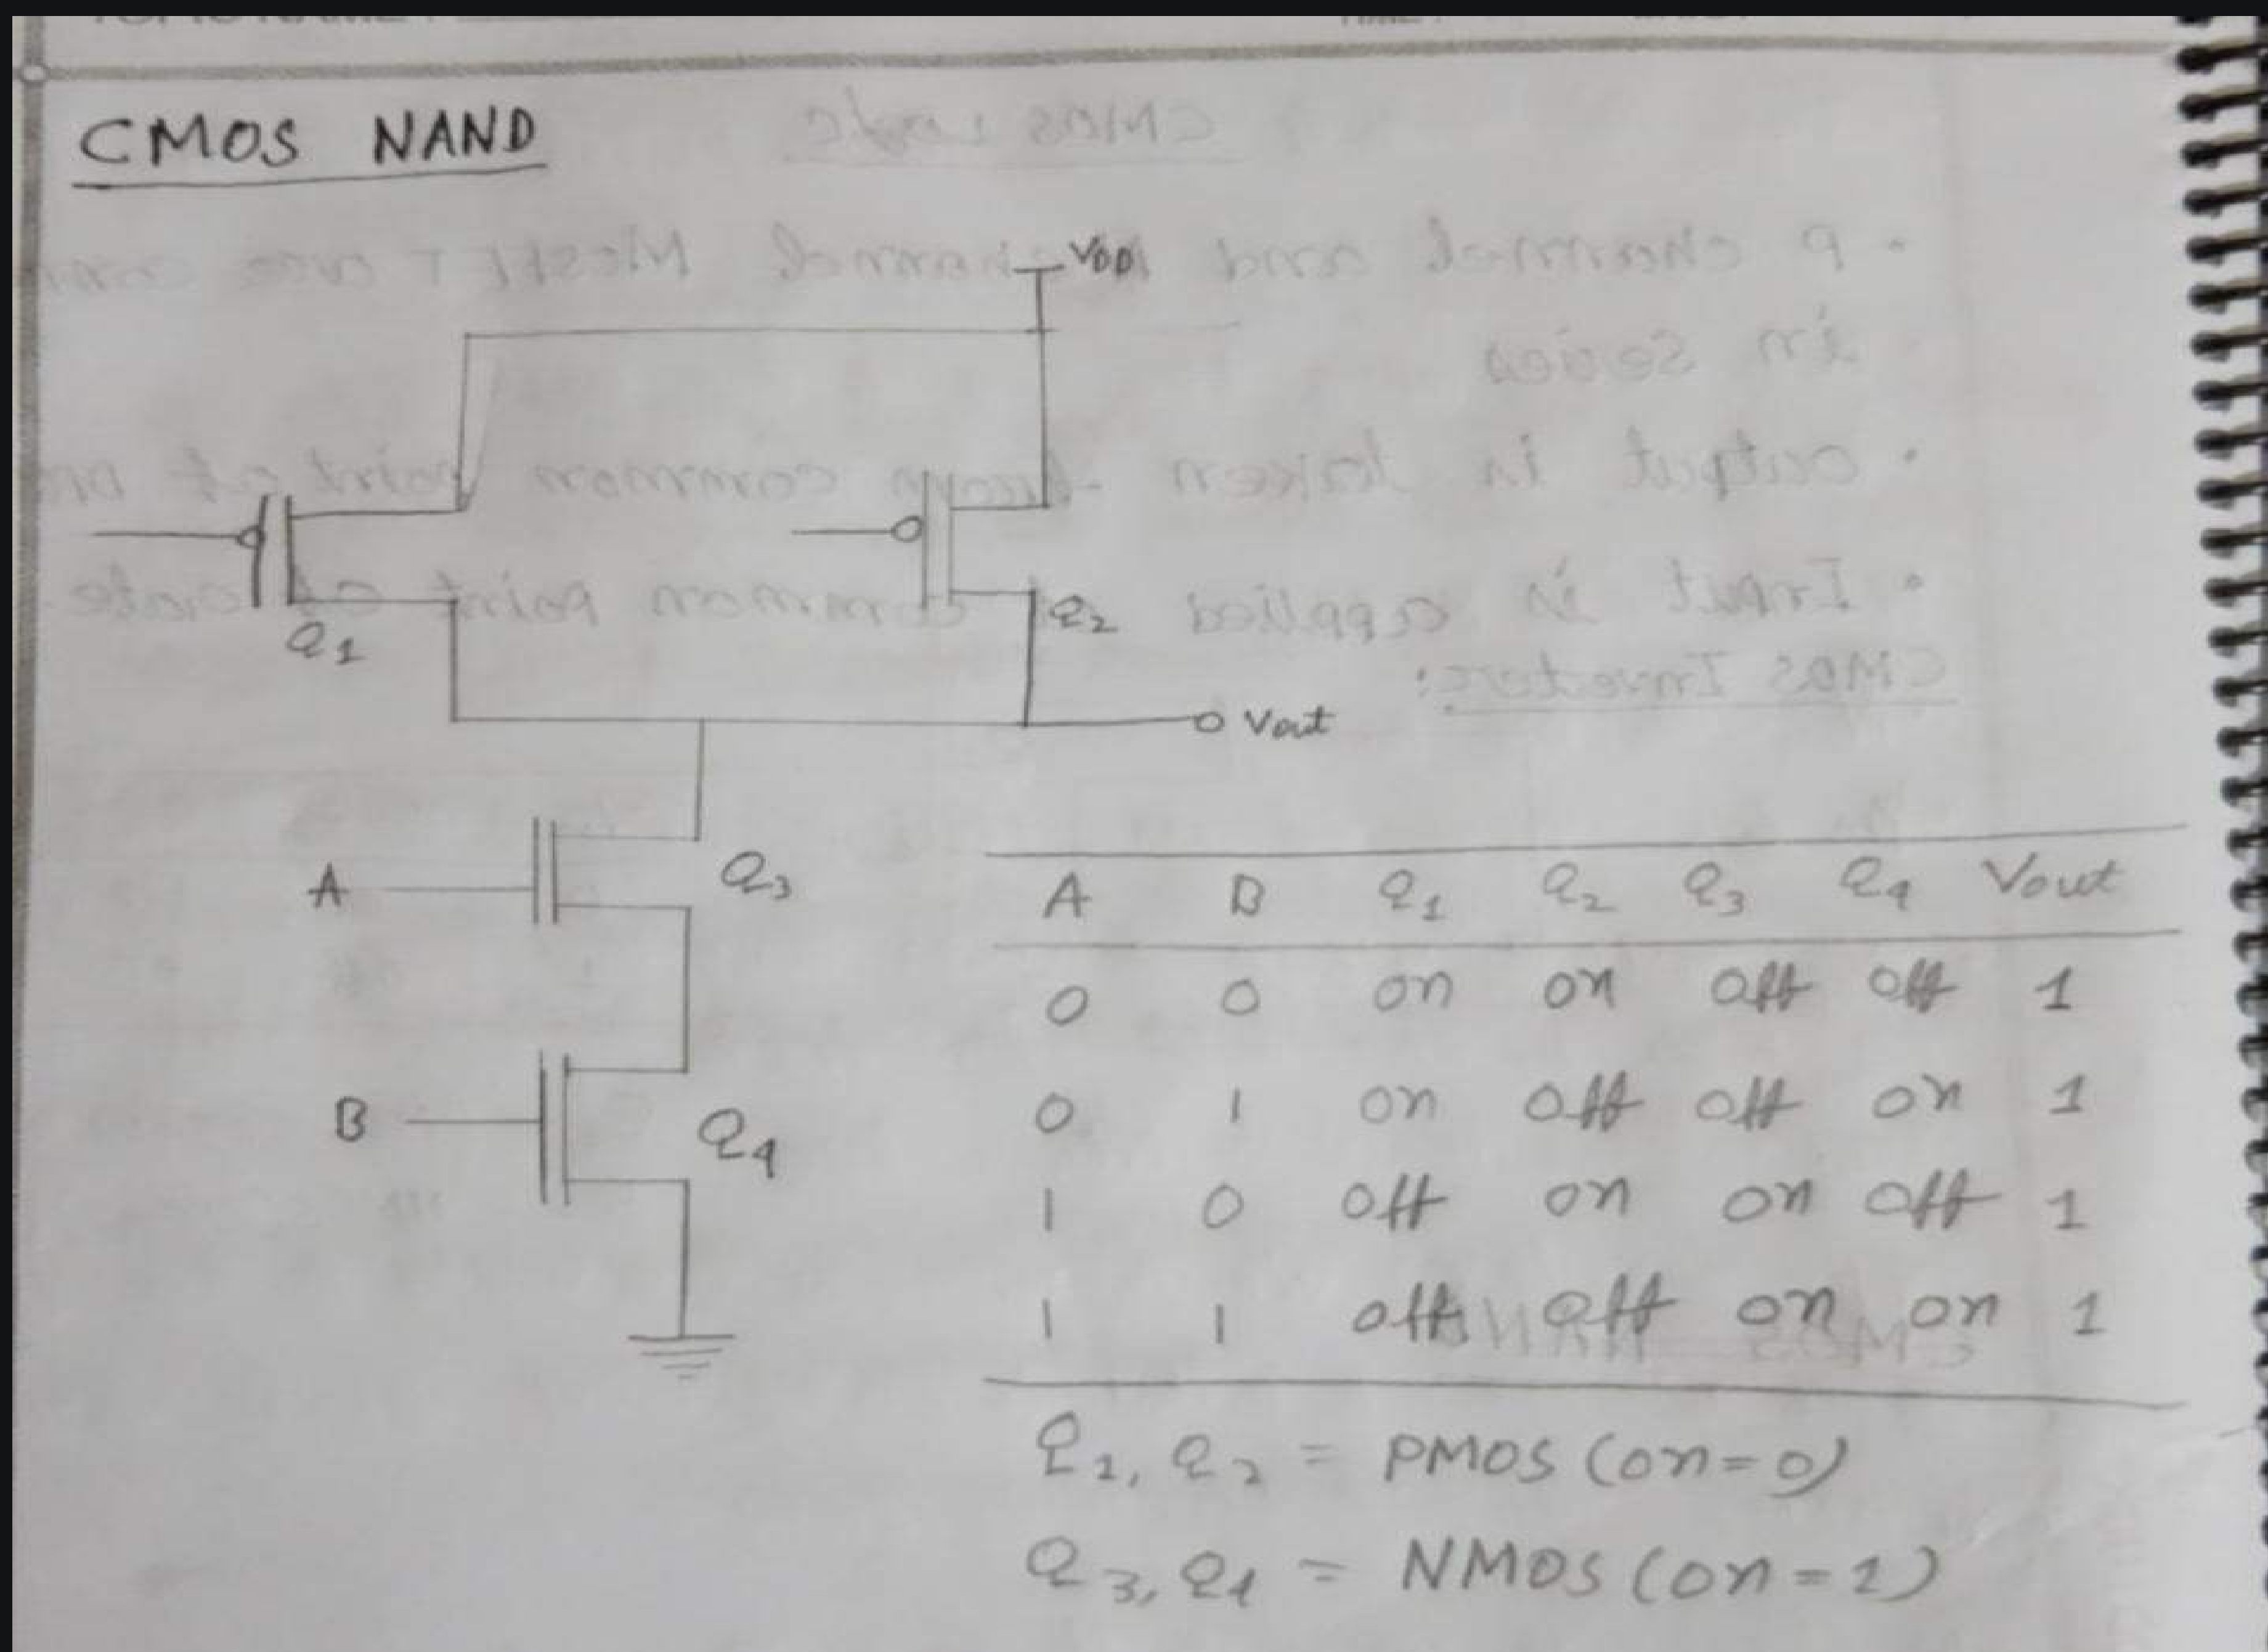 CMOS NAND
VDD
Q1
Q2
Vout
A
Q3
B
Q4
A B Q1 Q2 Q3 Q4 Vout
0 0 on on off off 1
0 1 on off off on 1
1 0 off on on off 1
1 1 off off on on 1
Q1, Q2 = PMOS (on=0)
Q3, Q4 = NMOS (on=1)